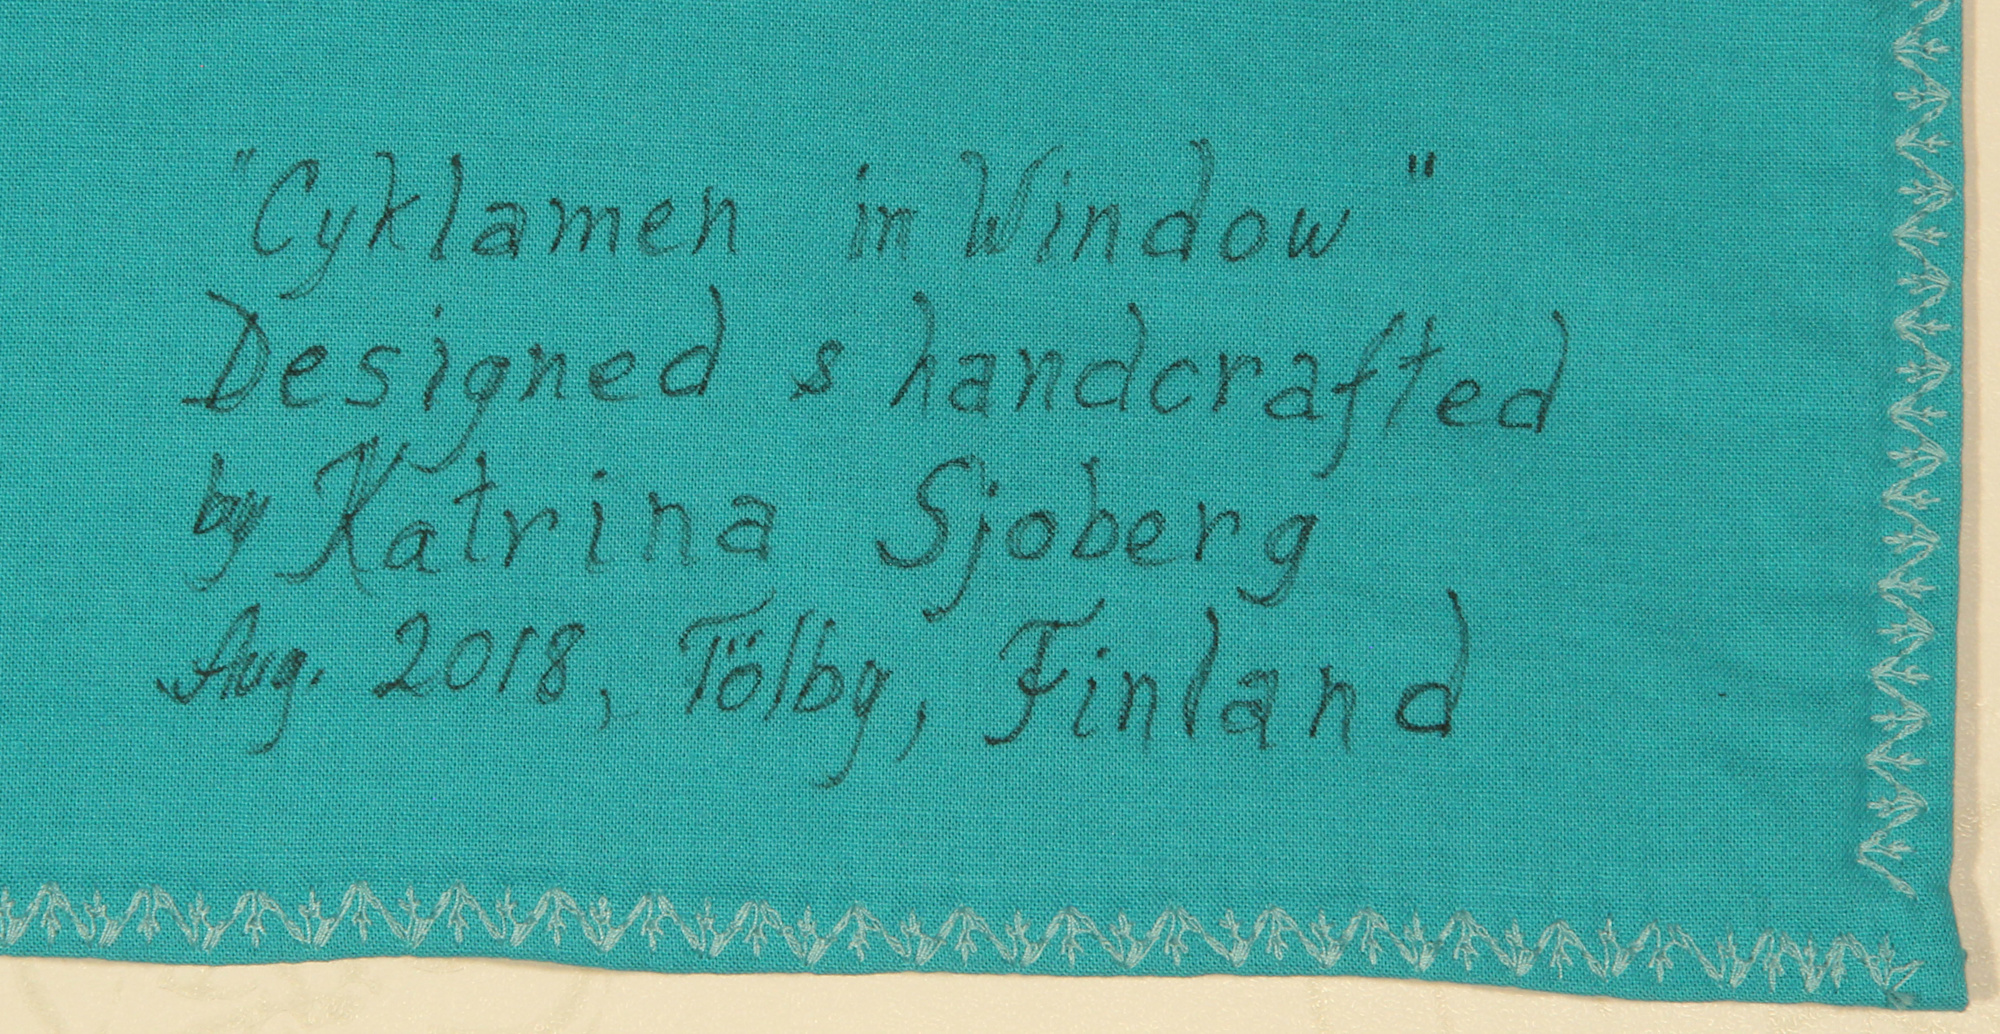 "Cyklamen in Window"
Designed & handcrafted
by Katrina Sjoberg
Aug. 2018, Tölby, Finland